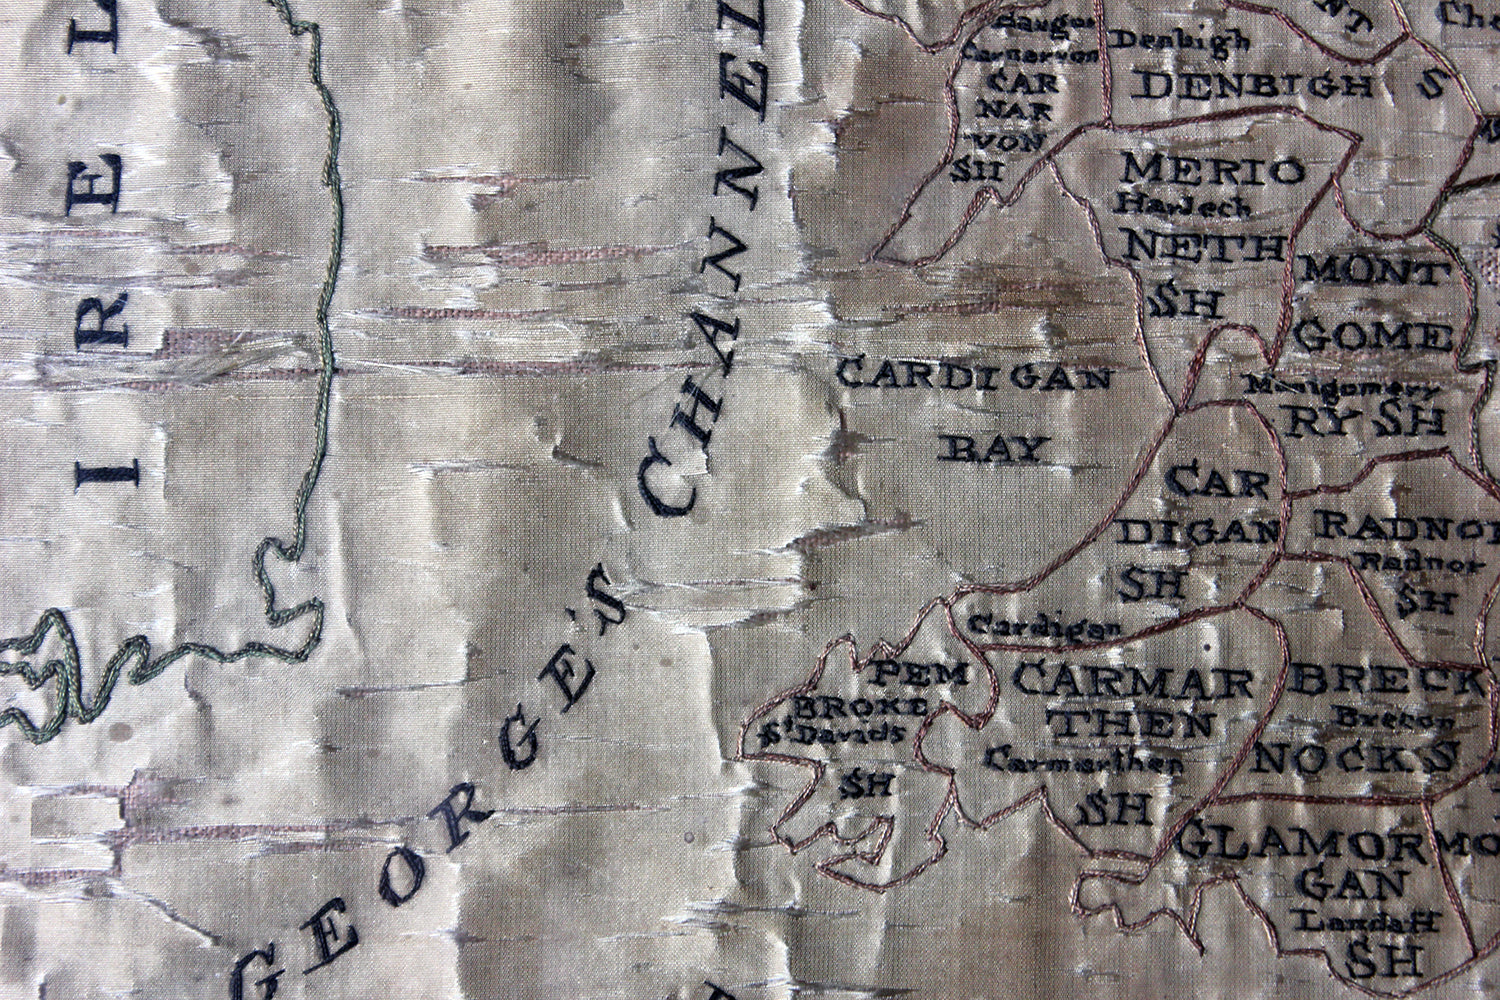 IREL
GEORGE'S CHANNEL
Bangor
Carnarvon
CAR
NAR
VON
SH
Denbigh
DENBIGH
S
NT
Che
MERIO
Harlech
NETH
SH
MONT
GOME
Montgomery
RY SH
CARDIGAN
BAY
CAR
DIGAN
SH
Cardigan
RADNOR
Radnor
SH
PEM
BROKE
St Davids
SH
CARMAR
THEN
Carmarthen
SH
BRECK
Brecon
NOCKS
GLAMOR
GAN
Landaff
SH
MO